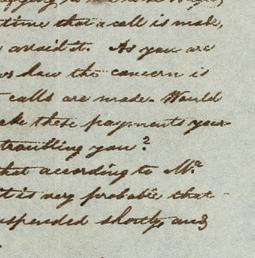 time that a call is made,
avoid it. As you are
how the concern is
calls are made. Would
these payments your
troubling you?
that according to Mr.
it is very probable that
suspended shortly, and